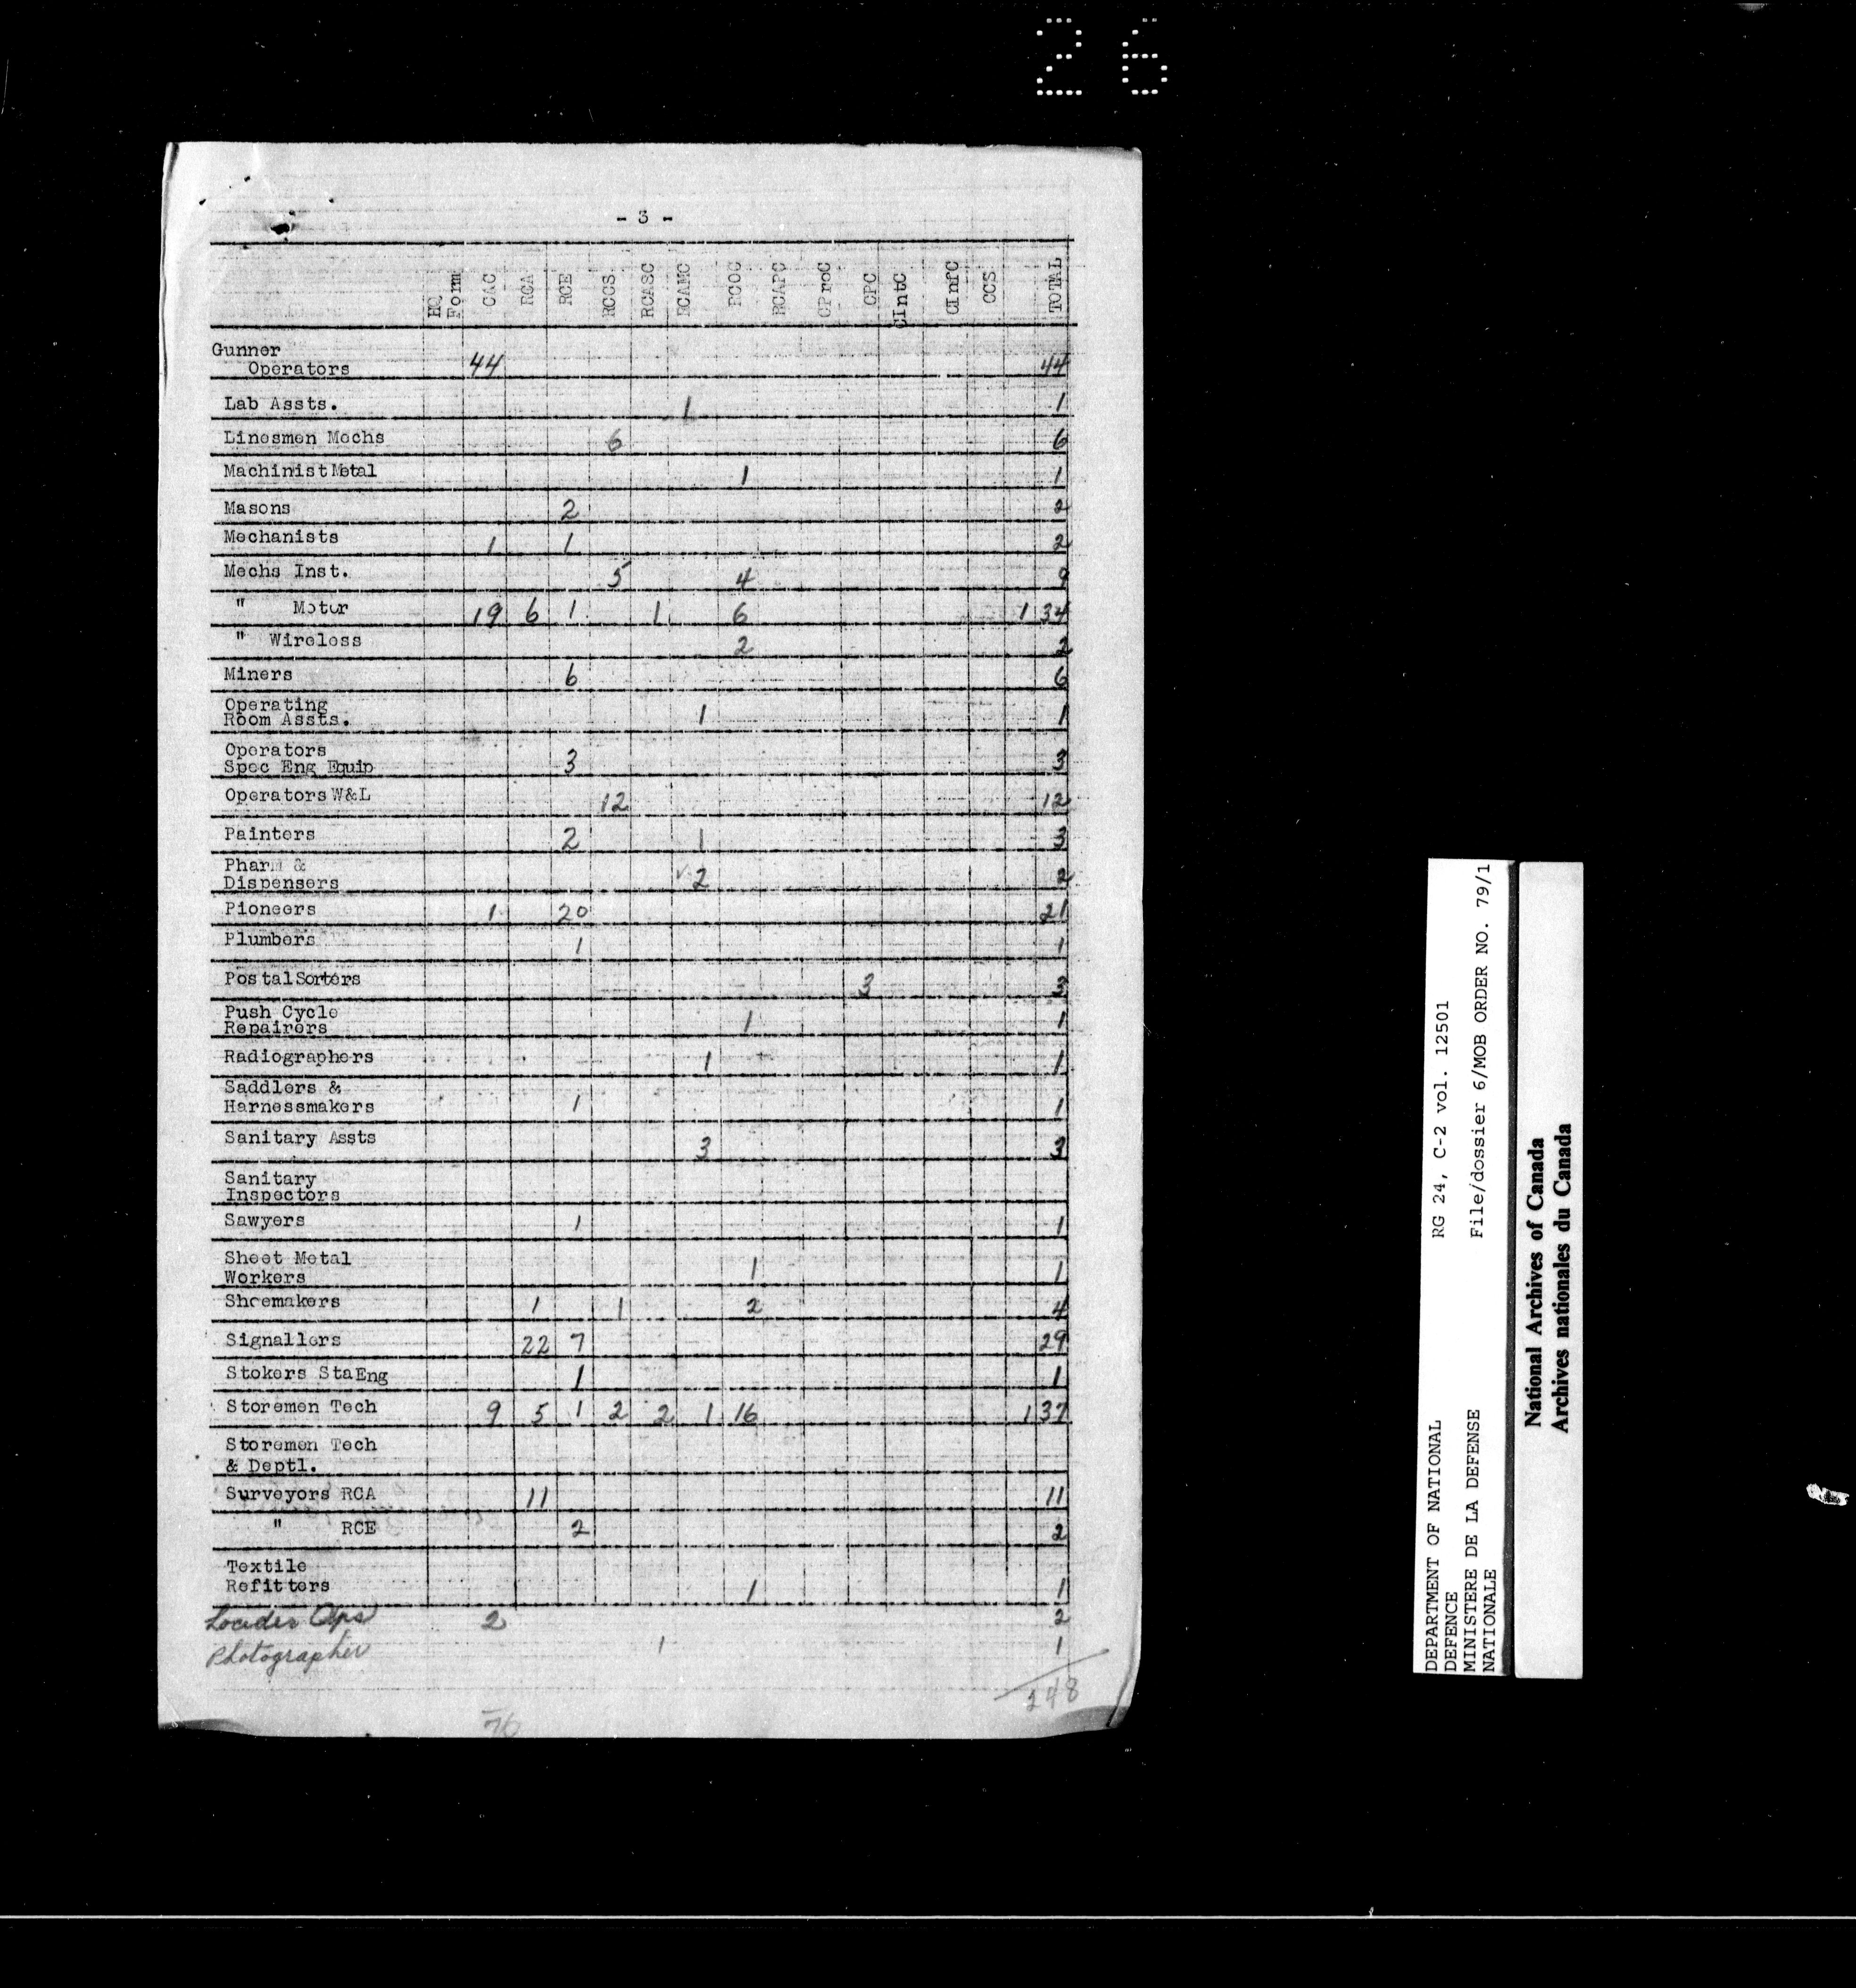 26
- 3 -
HQ Form CAC RCA RCE RCCS RCASC RCAMC RCOC RCAPC CProC CPC CIntC CInfC CCS TOTAL
Gunner
Operators 44 44
Lab Assts. 1 1
Linesmen Mechs 6 6
Machinist Metal 1 1
Masons 2 2
Mechanists 1 1 2
Mechs Inst. 5 4 9
" Motor 19 6 1 1 6 1 34
" Wireless 2 2
Miners 6 6
Operating
Room Assts. 1 1
Operators
Spec Eng Equip 3 3
Operators W&L 12 12
Painters 2 1 3
Pharm &
Dispensers 2 2
Pioneers 1 20 21
Plumbers 1 1
Postal Sorters 3 3
Push Cycle
Repairers 1 1
Radiographers 1 1
Saddlers &
Harnessmakers 1 1
Sanitary Assts 3 3
Sanitary
Inspectors
Sawyers 1 1
Sheet Metal
Workers 1 1
Shoemakers 1 1 2 4
Signallers 22 7 29
Stokers Sta Eng 1 1
Storemen Tech 9 5 1 2 2 1 16 1 37
Storemen Tech
& Deptl.
Surveyors RCA 11 11
" RCE 2 2
Textile
Refitters 1 1
Loader Ops 2 2
Photographer 1 1
248
76
DEPARTMENT OF NATIONAL DEFENCE
MINISTERE DE LA DEFENSE NATIONALE
RG 24, C-2 vol. 12501
File/dossier 6/MOB ORDER NO. 79/1
National Archives of Canada
Archives nationales du Canada